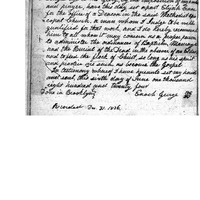 and prayer, have this day set apart
for the Office of a Deacon in the said Methodist
Episcopal Church, a man whom I judge to be well
qualified for that work, and I do hereby recommend
him to all whom it may concern as a proper person
to administer the ordinances of Baptism, Marriage
and the Burial of the Dead in the absence of an Elder
and to feed the flock of Christ, so long as his spirit
and practice are such as become the Gospel.
In testimony whereof I have hereunto set my hand
and seal, this sixth day of June one thousand
eight hundred and twenty four
Done in Brooklyn Enoch George
Recorded Dec. 31. 1836